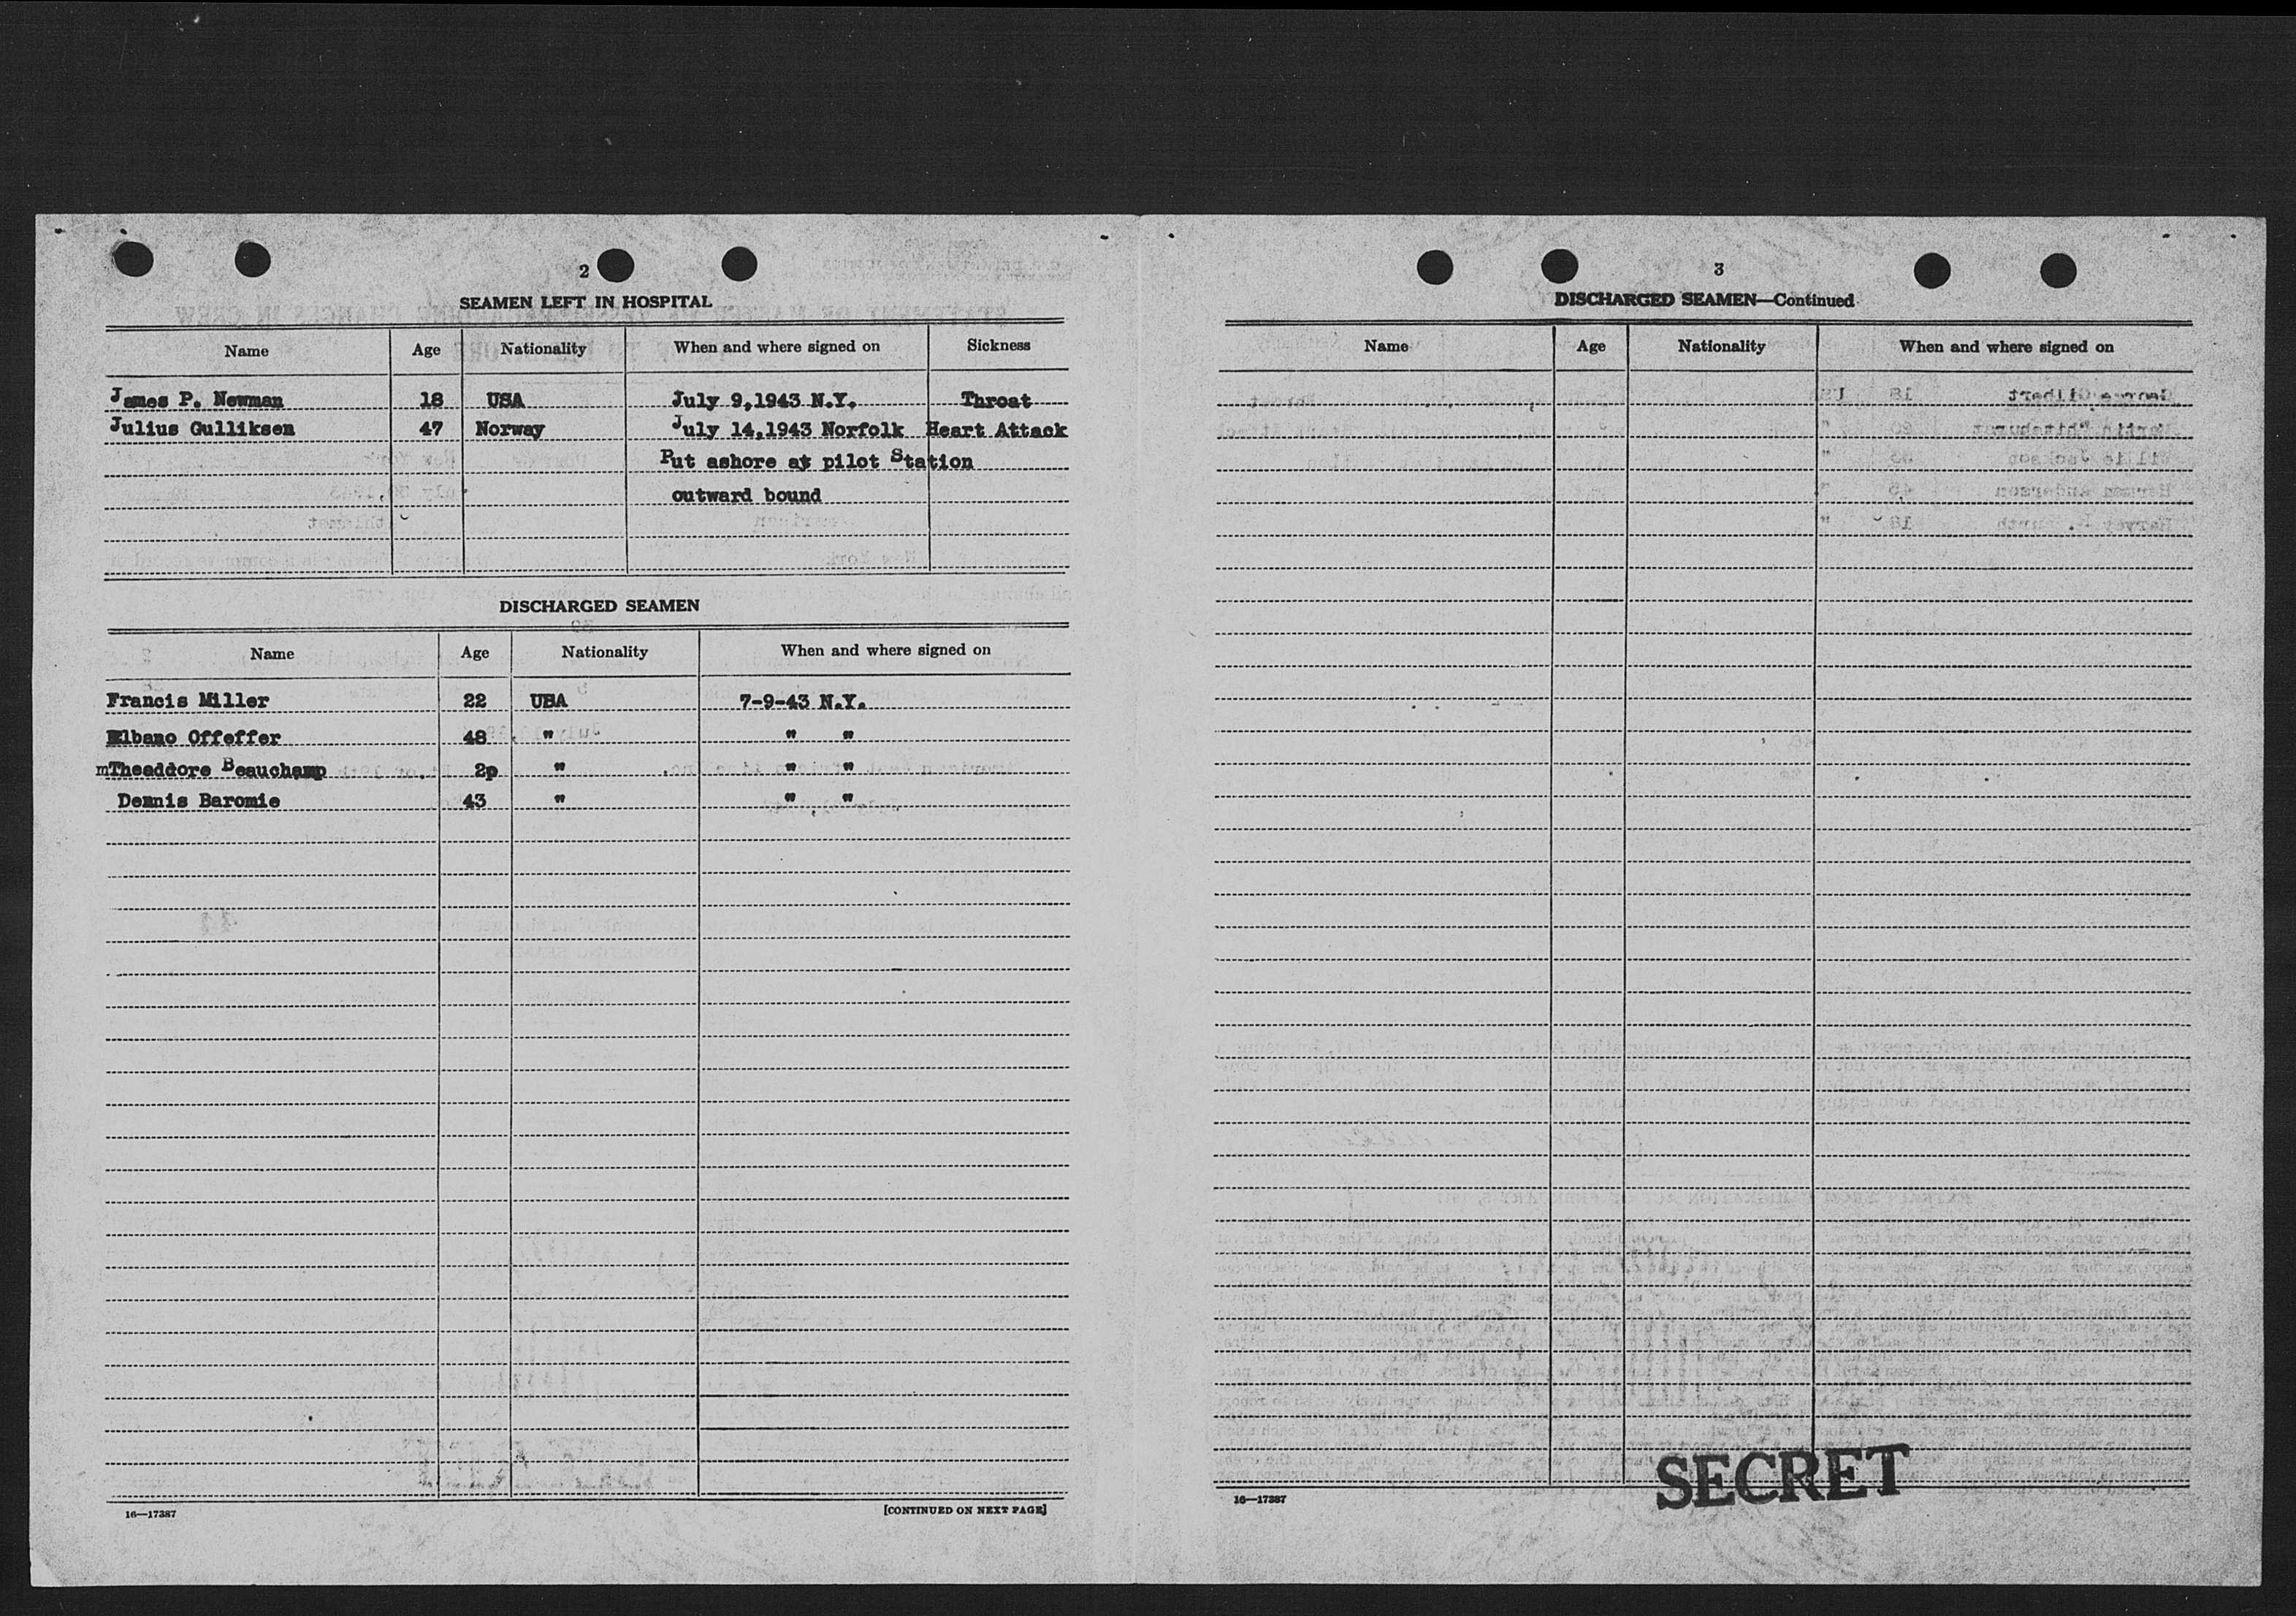 2
SEAMEN LEFT IN HOSPITAL
Name Age Nationality When and where signed on Sickness
James P. Newman 18 USA July 9,1943 N.Y. Throat
Julius Gulliksen 47 Norway July 14,1943 Norfolk Heart Attack
Put ashore at pilot Station
outward bound
DISCHARGED SEAMEN
Name Age Nationality When and where signed on
Francis Miller 22 USA 7-9-43 N.Y.
Elbano Offeffer 48 " " "
mTheoddore Beauchamp 2p " " "
Dennis Baromie 43 " " "
16—17387
[CONTINUED ON NEXT PAGE]
3
DISCHARGED SEAMEN—Continued
Name Age Nationality When and where signed on
16—17387
SECRET